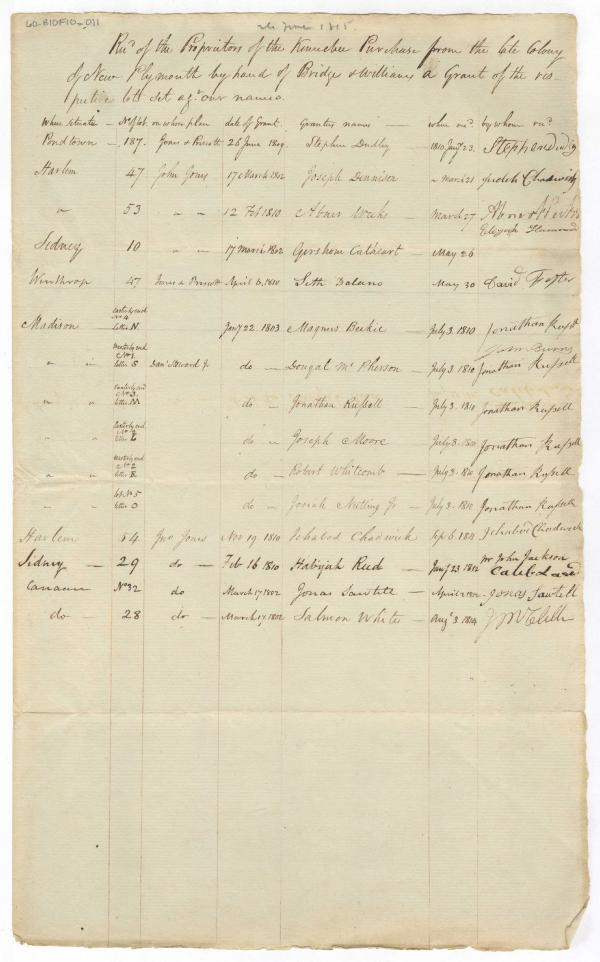 60-B10F10-011
June 1815
Rec.d of the Proprietors of the Kennebec Purchase from the late Colony
of New Plymouth by hand of Bridge & Williams a Grant of the res-
pective lots set ag.t our names.
Where situate — No. of lot on whose plan date of Grant Grantees names — when rec.d by whom rec.d
Pondtown — 187. Jones & Prescott 26 June 1809 Stephen Dudley 1810 Jan.y 23. Stephen Dudley
Harlem 47 John Jones 17 March 1802 Joseph Dennison " March 21 Judah Chadwick
" 53 " " 12 Feb 1810 Abner Weeks — March 27 Abner Weeks
Sidney 10 " " 17 March 1802 Gershom Cathcart — May 26
Winthrop 47 Jones & Prescott April 6, 1810 Seth Delano — May 30 David Foster
Madison Easterly end No 4 letter N. Jan.y 22. 1803 Magnus Beekie — July 3. 1810 Jonathan Russell
John Burns
" " Westerly end No 1. letter S Dan.l Steward Jr do — Dougal Mc Pherson — July 3. 1810 Jonathan Russell
" " Easterly end No 3. letter M do — Jonathan Russell — July 3. 1810 Jonathan Russell
" " Easterly end letter L do — Joseph Moore — July 3. 1810 Jonathan Russell
" " Westerly end No 2 letter R do — Robert Whitcomb — July 3. 1810 Jonathan Russell
lot No 5 letter O do — Josiah Nutting Jr — July 3. 1810 Jonathan Russell
Harlem 54 Jno Jones Nov 19 1810 Ichabod Chadwick Sep.t 6. 1811 Ichabod Chadwick
Sidney — 29 do — Feb 16 1810 Habijah Reed — Jan.y 23 1812 Mr John Jackson
Canaan No 32 do March 17, 1802 Jonas Sawtell — April 1802 Jonas Sawtell
do — 28 do — March 17. 1802 Salmon White — Aug.t 3. 1814